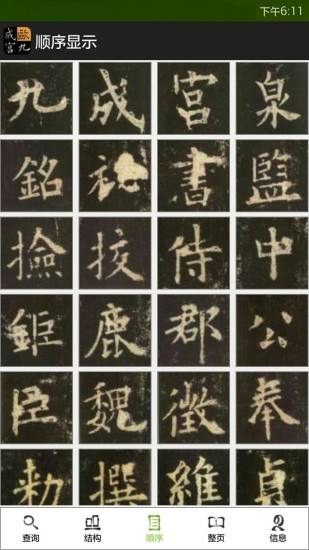 下午6:11
成歐
宮九
顺序显示
九成宮泉
銘祕書監
撿挍侍中
鉅鹿郡公
臣魏徵奉
勑撰維貞
查询 结构 顺序 整页 信息